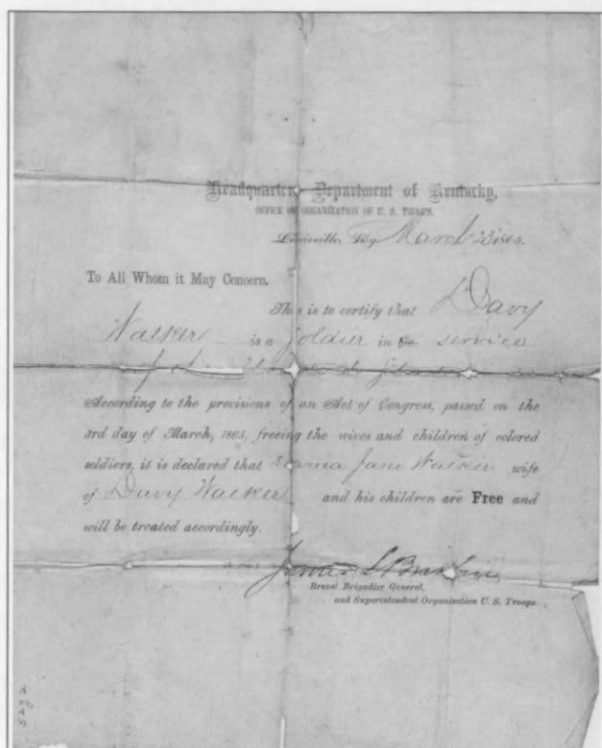 Headquarters Department of Kentucky,
OFFICE OF ORGANIZATION OF U. S. TROOPS.
Louisville, Ky. March 1865.
To All Whom it May Concern.
This is to certify that Davy
Walker is a Soldier in the service
of the United States
According to the provisions of an Act of Congress, passed on the
3rd day of March, 1865, freeing the wives and children of colored
soldiers, it is declared that Jane Walker wife
of Davy Walker and his children are Free and
will be treated accordingly.
James S Brisbin
Brevet Brigadier General,
and Superintendent Organization U. S. Troops.